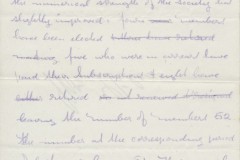 the numerical strength of the society has
slightly improved : five members
have been elected others have retired
making five who were in arrear have
paid their subscriptions & eight have
either retired
leaving the number of members 62
The number at the corresponding period